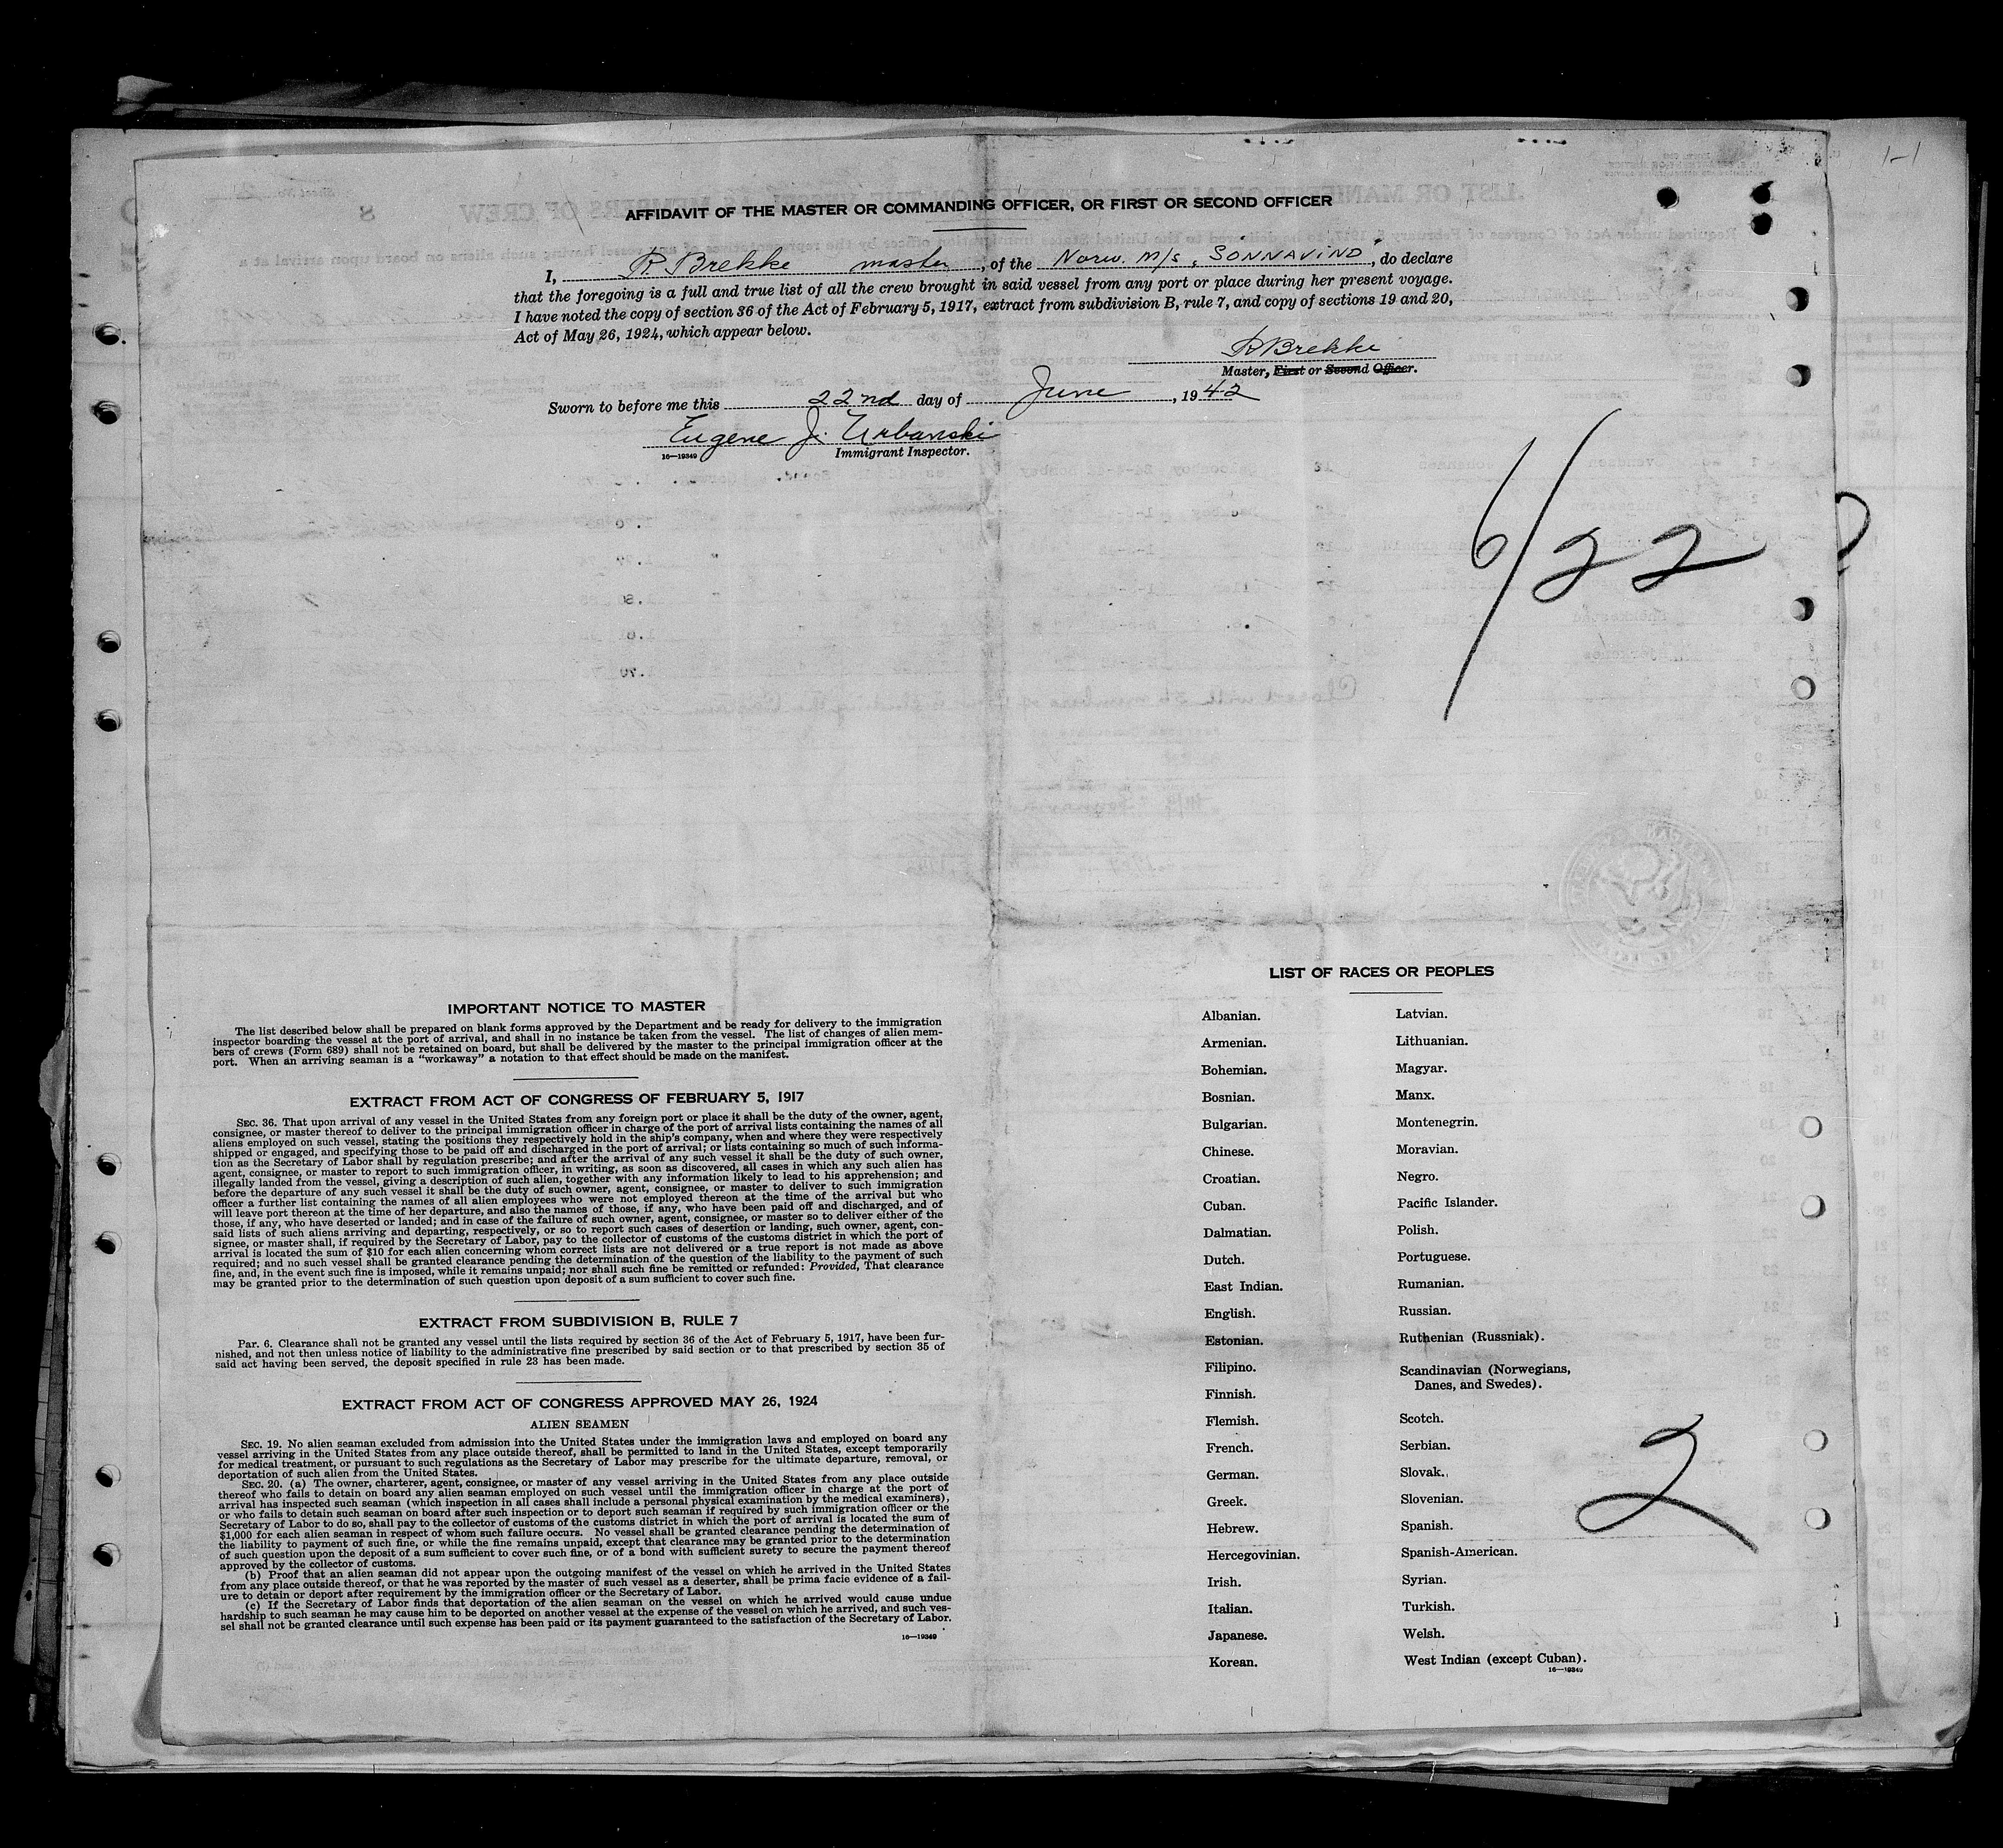 1-1
AFFIDAVIT OF THE MASTER OR COMMANDING OFFICER, OR FIRST OR SECOND OFFICER
I, R Brekke master, of the Norw. m/s „SONNAVIND", do declare
that the foregoing is a full and true list of all the crew brought in said vessel from any port or place during her present voyage.
I have noted the copy of section 36 of the Act of February 5, 1917, extract from subdivision B, rule 7, and copy of sections 19 and 20,
Act of May 26, 1924, which appear below.
R Brekke
Master, First or Second Officer.
Sworn to before me this 22nd day of June, 1942
Eugene J. Urbanski
16—19349 Immigrant Inspector.
6/22
IMPORTANT NOTICE TO MASTER
The list described below shall be prepared on blank forms approved by the Department and be ready for delivery to the immigration
inspector boarding the vessel at the port of arrival, and shall in no instance be taken from the vessel. The list of changes of alien mem-
bers of crews (Form 689) shall not be retained on board, but shall be delivered by the master to the principal immigration officer at the
port. When an arriving seaman is a “workaway” a notation to that effect should be made on the manifest.
EXTRACT FROM ACT OF CONGRESS OF FEBRUARY 5, 1917
SEC. 36. That upon arrival of any vessel in the United States from any foreign port or place it shall be the duty of the owner, agent,
consignee, or master thereof to deliver to the principal immigration officer in charge of the port of arrival lists containing the names of all
aliens employed on such vessel, stating the positions they respectively hold in the ship's company, when and where they were respectively
shipped or engaged, and specifying those to be paid off and discharged in the port of arrival; or lists containing so much of such informa-
tion as the Secretary of Labor shall by regulation prescribe; and after the arrival of any such vessel it shall be the duty of such owner,
agent, consignee, or master to report to such immigration officer, in writing, as soon as discovered, all cases in which any such alien has
illegally landed from the vessel, giving a description of such alien, together with any information likely to lead to his apprehension; and
before the departure of any such vessel it shall be the duty of such owner, agent, consignee, or master to deliver to such immigration
officer a further list containing the names of all alien employees who were not employed thereon at the time of the arrival but who
will leave port thereon at the time of her departure, and also the names of those, if any, who have been paid off and discharged, and of
those, if any, who have deserted or landed; and in case of the failure of such owner, agent, consignee, or master so to deliver either of the
said lists of such aliens arriving and departing, respectively, or so to report such cases of desertion or landing, such owner, agent, con-
signee, or master shall, if required by the Secretary of Labor, pay to the collector of customs of the customs district in which the port of
arrival is located the sum of $10 for each alien concerning whom correct lists are not delivered or a true report is not made as above
required; and no such vessel shall be granted clearance pending the determination of the question of the liability to the payment of such
fine, and, in the event such fine is imposed, while it remains unpaid; nor shall such fine be remitted or refunded: Provided, That clearance
may be granted prior to the determination of such question upon deposit of a sum sufficient to cover such fine.
EXTRACT FROM SUBDIVISION B, RULE 7
Par. 6. Clearance shall not be granted any vessel until the lists required by section 36 of the Act of February 5, 1917, have been fur-
nished, and not then unless notice of liability to the administrative fine prescribed by said section or to that prescribed by section 35 of
said act having been served, the deposit specified in rule 23 has been made.
EXTRACT FROM ACT OF CONGRESS APPROVED MAY 26, 1924
ALIEN SEAMEN
SEC. 19. No alien seaman excluded from admission into the United States under the immigration laws and employed on board any
vessel arriving in the United States from any place outside thereof, shall be permitted to land in the United States, except temporarily
for medical treatment, or pursuant to such regulations as the Secretary of Labor may prescribe for the ultimate departure, removal, or
deportation of such alien from the United States.
SEC. 20. (a) The owner, charterer, agent, consignee, or master of any vessel arriving in the United States from any place outside
thereof who fails to detain on board any alien seaman employed on such vessel until the immigration officer in charge at the port of
arrival has inspected such seaman (which inspection in all cases shall include a personal physical examination by the medical examiners),
or who fails to detain such seaman on board after such inspection or to deport such seaman if required by such immigration officer or the
Secretary of Labor to do so, shall pay to the collector of customs of the customs district in which the port of arrival is located the sum of
$1,000 for each alien seaman in respect of whom such failure occurs. No vessel shall be granted clearance pending the determination of
the liability to payment of such fine, or while the fine remains unpaid, except that clearance may be granted prior to the determination
of such question upon the deposit of a sum sufficient to cover such fine, or of a bond with sufficient surety to secure the payment thereof
approved by the collector of customs.
(b) Proof that an alien seaman did not appear upon the outgoing manifest of the vessel on which he arrived in the United States
from any place outside thereof, or that he was reported by the master of such vessel as a deserter, shall be prima facie evidence of a fail-
ure to detain or deport after requirement by the immigration officer or the Secretary of Labor.
(c) If the Secretary of Labor finds that deportation of the alien seaman on the vessel on which he arrived would cause undue
hardship to such seaman he may cause him to be deported on another vessel at the expense of the vessel on which he arrived, and such ves-
sel shall not be granted clearance until such expense has been paid or its payment guaranteed to the satisfaction of the Secretary of Labor.
16—19349
LIST OF RACES OR PEOPLES
Albanian.
Armenian.
Bohemian.
Bosnian.
Bulgarian.
Chinese.
Croatian.
Cuban.
Dalmatian.
Dutch.
East Indian.
English.
Estonian.
Filipino.
Finnish.
Flemish.
French.
German.
Greek.
Hebrew.
Hercegovinian.
Irish.
Italian.
Japanese.
Korean.
Latvian.
Lithuanian.
Magyar.
Manx.
Montenegrin.
Moravian.
Negro.
Pacific Islander.
Polish.
Portuguese.
Rumanian.
Russian.
Ruthenian (Russniak).
Scandinavian (Norwegians,
Danes, and Swedes).
Scotch.
Serbian.
Slovak.
Slovenian.
Spanish.
Spanish-American.
Syrian.
Turkish.
Welsh.
West Indian (except Cuban).
16—19349
2